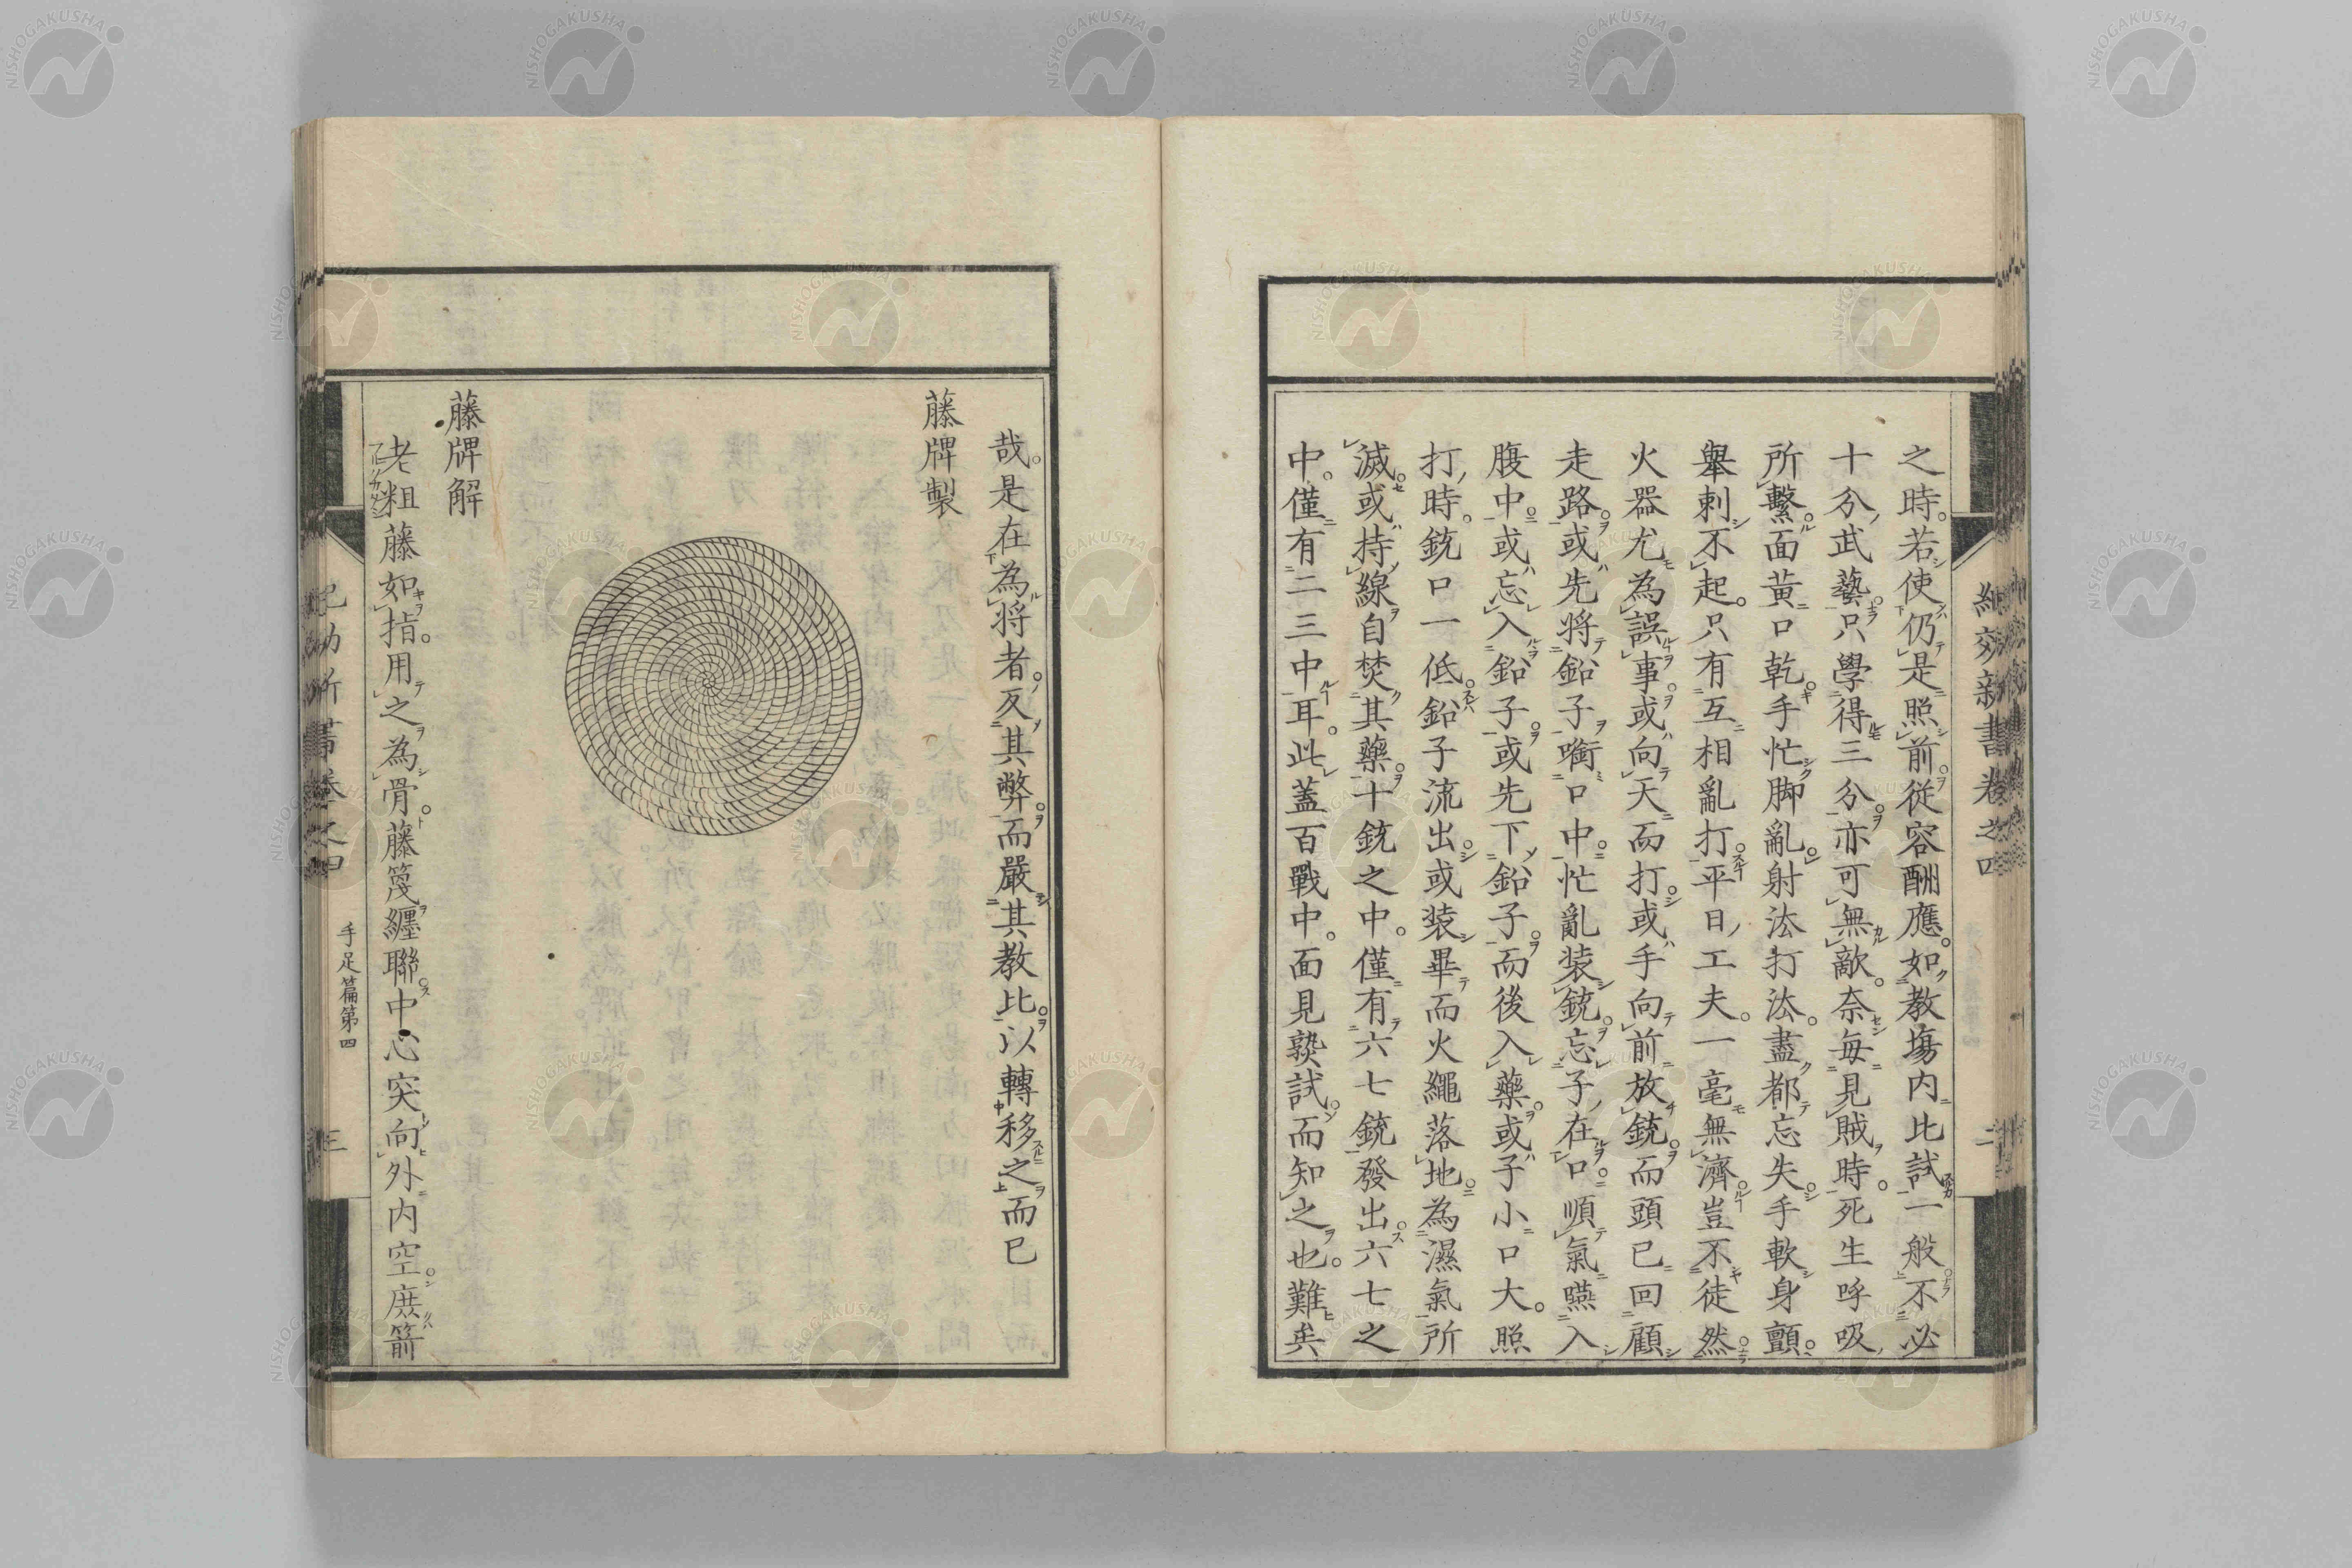 紀効新書卷之四 二
之時。若使仍是照前從容酬應。如教塲内比試一般。不必
十分武藝。只學得三分。亦可無敵。奈毎見賊時。死生呼吸
所繫。面黄口乾。手忙脚亂。射法打法。盡都忘失。手軟身顫。
舉刺不起。只有互相亂打。平日工夫。一毫無濟。豈不徒然。
火器尤為誤事。或向天而打。或手向前放銃。而頭已回顧
走路。或先將鉛子噙口中。忙亂装銃。忘子在口。順氣嚥入
腹中。或忘入鉛子。或先下鉛子。而後入藥。或子小口大。照
打時。銃口一低。鉛子流出。或装畢而火繩落地。為濕氣所
滅。或持線自焚其藥。十銃之中。僅有六七銃發出。六七之
中。僅有二三中耳。此蓋百戰中。面見㷍試。而知之也。難矣
哉。是在為將者。反其弊。而嚴其教比。以轉移之而已
藤牌製
藤牌解
老粗藤如指。用之為骨。藤篾纏聯。中心突向外内空。庶箭
紀効新書卷之四 手足篇第四 三
NISHOGAKUSHA